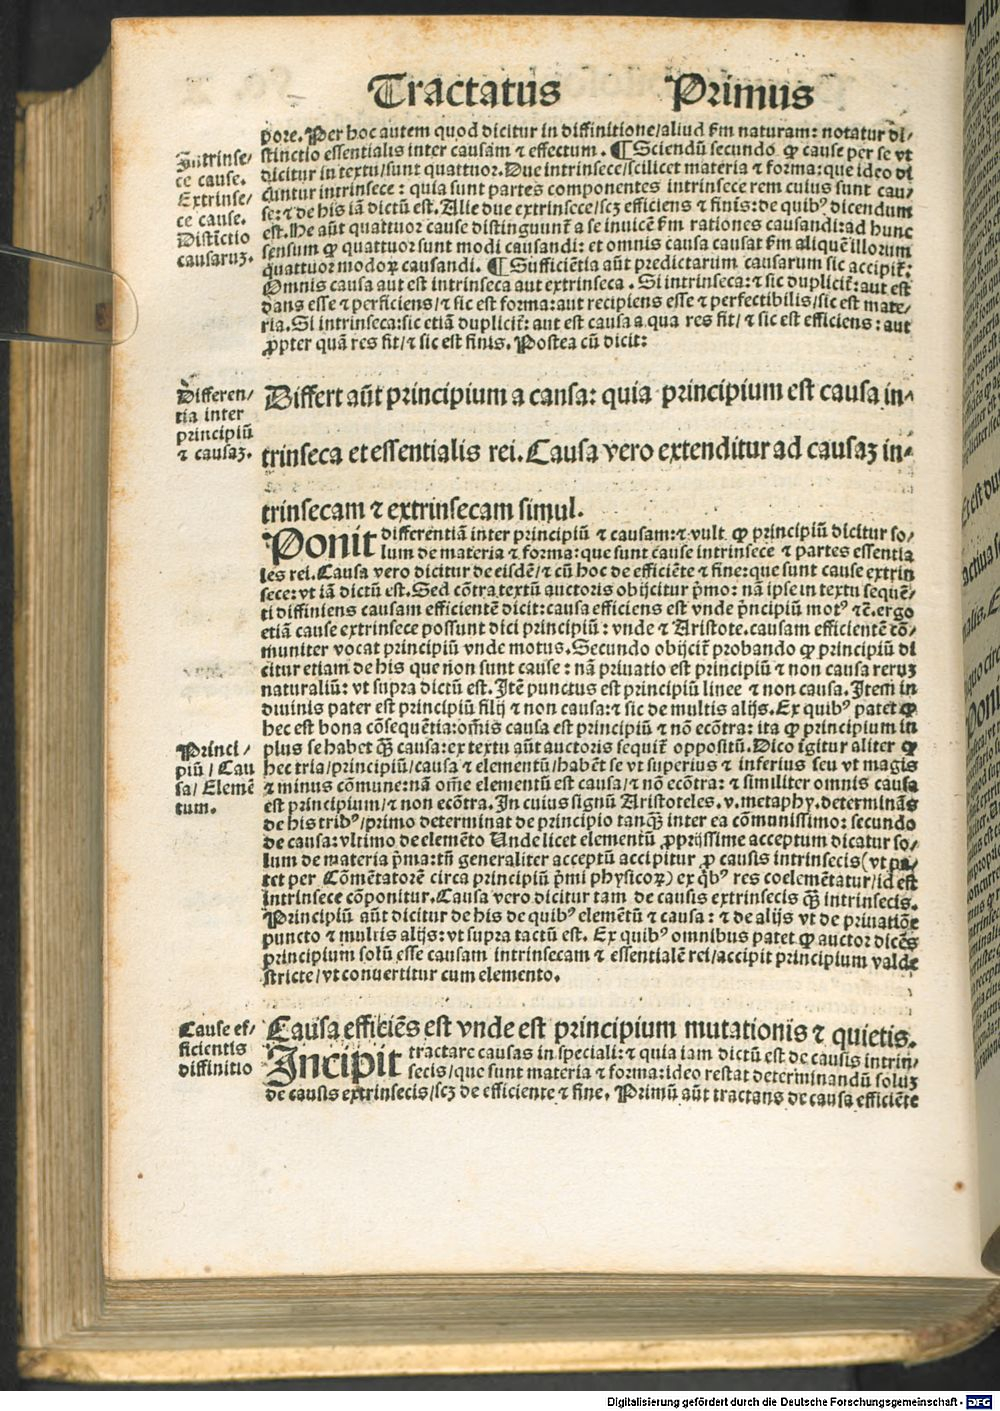 Tractatus Primus
pore. Per hoc autem quod dicitur in diffinitione/aliud ẜm naturam: notatur di⸗
stinctio essentialis inter causam ⁊ effectum. ¶ Sciendū secundo ꝙ cause per se vt
dicitur in textu/sunt quattuor. Due intrinsece/scilicet materia ⁊ forma: que ideo di
cuntur intrinsece: quia sunt partes componentes intrinsece rem cuius sunt cau⸗
se: ⁊ de his iā dictū est. Alie due extrinsece/scꝫ efficiens ⁊ finis: de quibꝰ dicendum
est. He aūt quattuor cause distinguunt̄ a se inuicē ẜm rationes causandi: ad hunc
sensum ꝙ quattuor sunt modi causandi: et omnis causa causat ẜm aliquē illorum
quattuor modoꝝ causandi. ¶ Sufficiētia aūt predictarum causarum sic accipit̄:
Omnis causa aut est intrinseca aut extrinseca. Si intrinseca: ⁊ sic duplicit̄: aut est
dans esse ⁊ perficiens/⁊ sic est forma: aut recipiens esse ⁊ perfectibilis/sic est mate⸗
ria. Si intrinseca: sic etiā duplicit̄: aut est causa a qua res fit/⁊ sic est efficiens: aut
ꝓpter quā res fit/⁊ sic est finis. Postea cū dicit:
Intrinse⸗
ce cause.
Extrinse⸗
ce cause.
Distīctio
causaruꝫ.
Differt aūt principium a cansa: quia principium est causa in⸗
trinseca et essentialis rei. Causa vero extenditur ad causaꝫ in⸗
trinsecam ⁊ extrinsecam simul.
Differen⸗
tia inter
principiū
⁊ causaꝫ.
Ponit differentiā inter principiū ⁊ causam: ⁊ vult ꝙ principiū dicitur so⸗
lum de materia ⁊ forma: que sunt cause intrinsece ⁊ partes essentia
les rei. Causa vero dicitur de eisdē/⁊ cū hoc de efficiēte ⁊ fine: que sunt cause extrin
sece: vt iā dictū est. Sed cōtra textū auctoris obijcitur p̄mo: nā ipse in textu sequē⸗
ti diffiniens causam efficientē dicit: causa efficiens est vnde p̄ncipiū motꝰ ⁊ē. ergo
etiā cause extrinsece possunt dici principiū: vnde ⁊ Aristote. causam efficientē cō⸗
muniter vocat principiū vnde motus. Secundo obijcit̄ probando ꝙ principiū di
citur etiam de his que non sunt cause: nā priuatio est principiū ⁊ non causa reruꝫ
naturaliū: vt supra dictū est. Itē punctus est principiū linee ⁊ non causa. Item in
diuinis pater est principiū filij ⁊ non causa: ⁊ sic de multis alijs. Ex quibꝰ patet ꝙ
hec est bona cōsequētia: om̄is causa est principiū ⁊ nō ecōtra: ita ꝙ principium in
plus se habet q̄ꝫ causa: ex textu aūt auctoris sequit̄ oppositū. Dico igitur aliter ꝙ
hec tria/principiū/causa ⁊ elementū/habēt se vt superius ⁊ inferius seu vt magis
⁊ minus cōmune: nā om̄e elementū est causa/⁊ nō ecōtra: ⁊ similiter omnis causa
est principium/⁊ non ecōtra. In cuius signū Aristoteles. v. metaphy. determinās
de his tribꝰ/primo determinat de principio tanq̄ꝫ inter ea cōmunissimo: secundo
de causa: vltimo de elemēto Unde licet elementū ꝓprijssime acceptum dicatur so⸗
lum de materia p̄ma: tn̄ generaliter acceptū accipitur ꝓ causis intrinsecis(vt pa⸗
tet per Cōmētatorē circa principiū p̄mi physicoꝝ) ex q̄bꝰ res coelemētatur/id est
intrinsece cōponitur. Causa vero dicitur tam de causis extrinsecis q̄ꝫ intrinsecis.
Principiū aūt dicitur de his de quibꝰ elementū ⁊ causa: ⁊ de alijs vt de priuatiōe
puncto ⁊ multis alijs: vt supra tactū est. Ex quibꝰ omnibus patet ꝙ auctor dicēs
principium solū esse causam intrinsecam ⁊ essentialē rei/accipit principium valde
stricte/vt conuertitur cum elemento.
Princi⸗
piū/Cau
sa/Elemē
tum.
Causa efficiēs est vnde est principium mutationis ⁊ quietis.
Incipit tractare causas in speciali: ⁊ quia iam dictū est de causis intrin⸗
secis/que sunt materia ⁊ forma: ideo restat determinandū soluꝫ
de causis extrinsecis/scꝫ de efficiente ⁊ fine. Primū aūt tractans de causa efficiēte
Cause ef⸗
ficientis
diffinitio
Digitalisierung gefördert durch die Deutsche Forschungsgemeinschaft - DFG